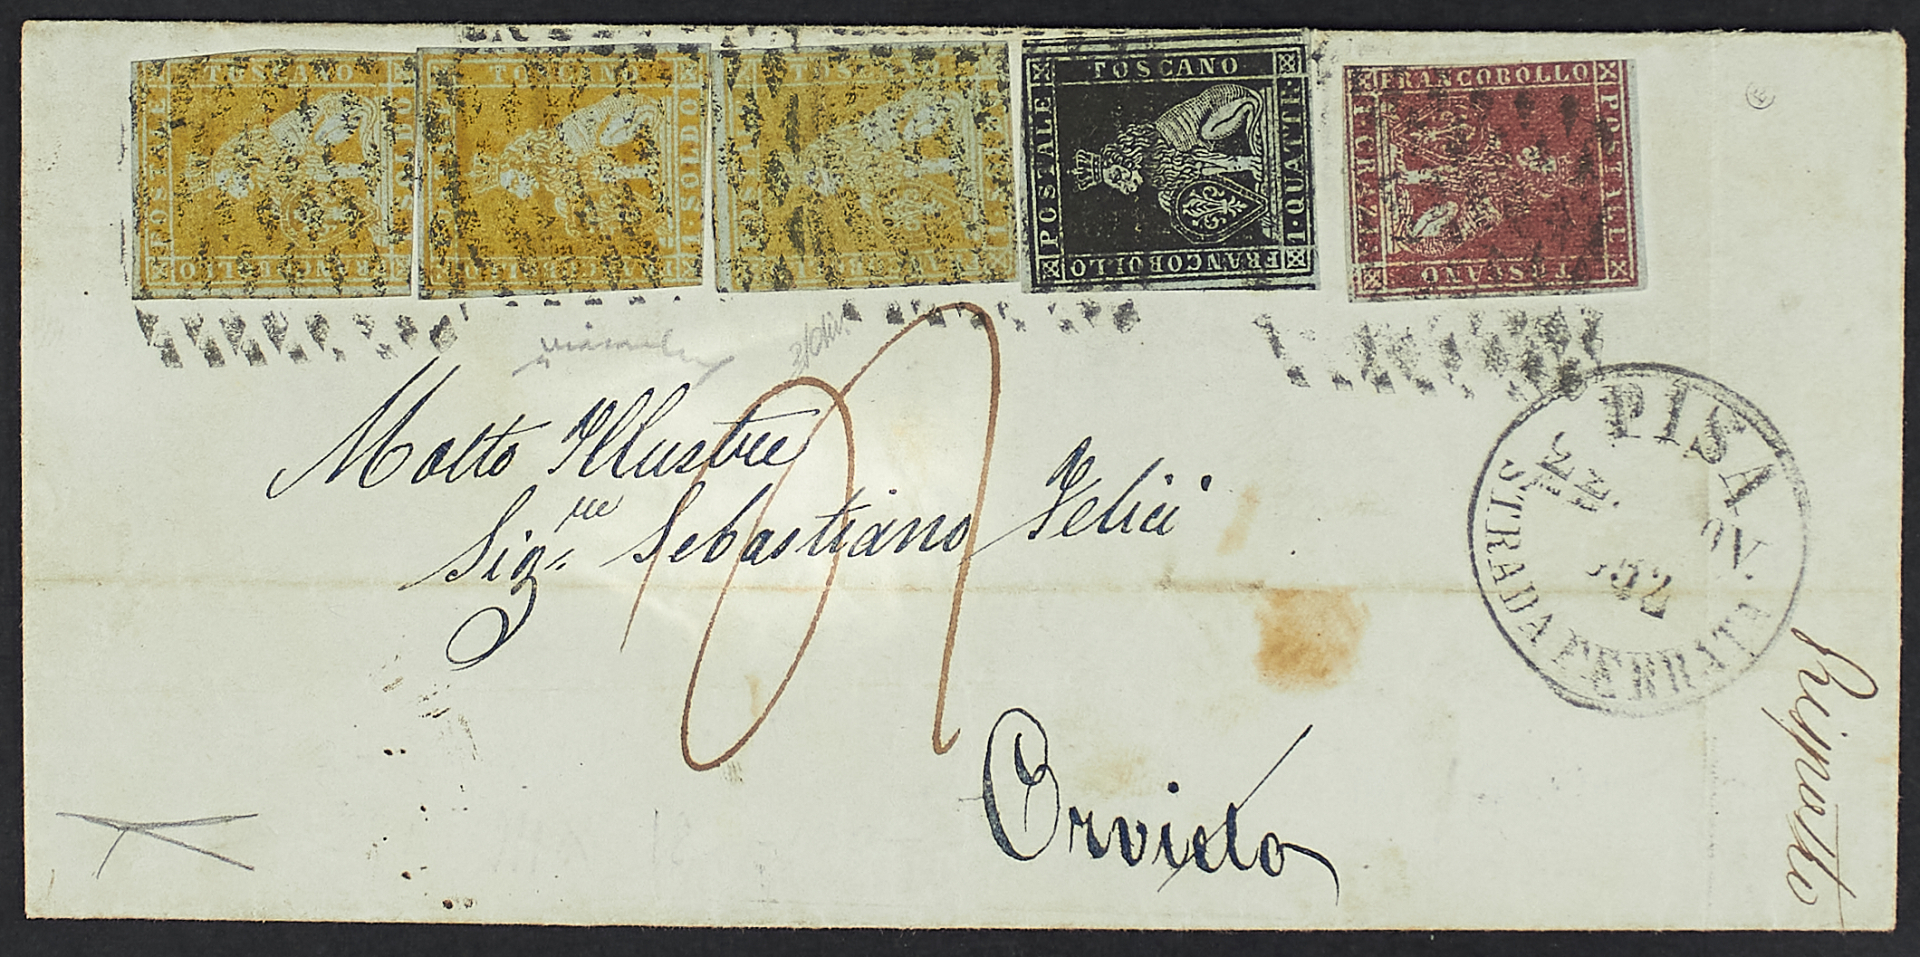 TOSCANO
POSTALE
SOLDO
FRANCOBOLLO
TOSCANO
1·SOLDO
FRANCOBOLLO
TOSCANO
FRANCOBOLLO
TOSCANO
POSTALE
1·QUATTR.
FRANCOBOLLO
FRANCOBOLLO
POSTALE
1 CRAZIE
TOSCANO
Molto Illustre
Sigre Sebastiano Felici
Orvieto
PISA
STRADA FERRATA
NO.
52
Risposto